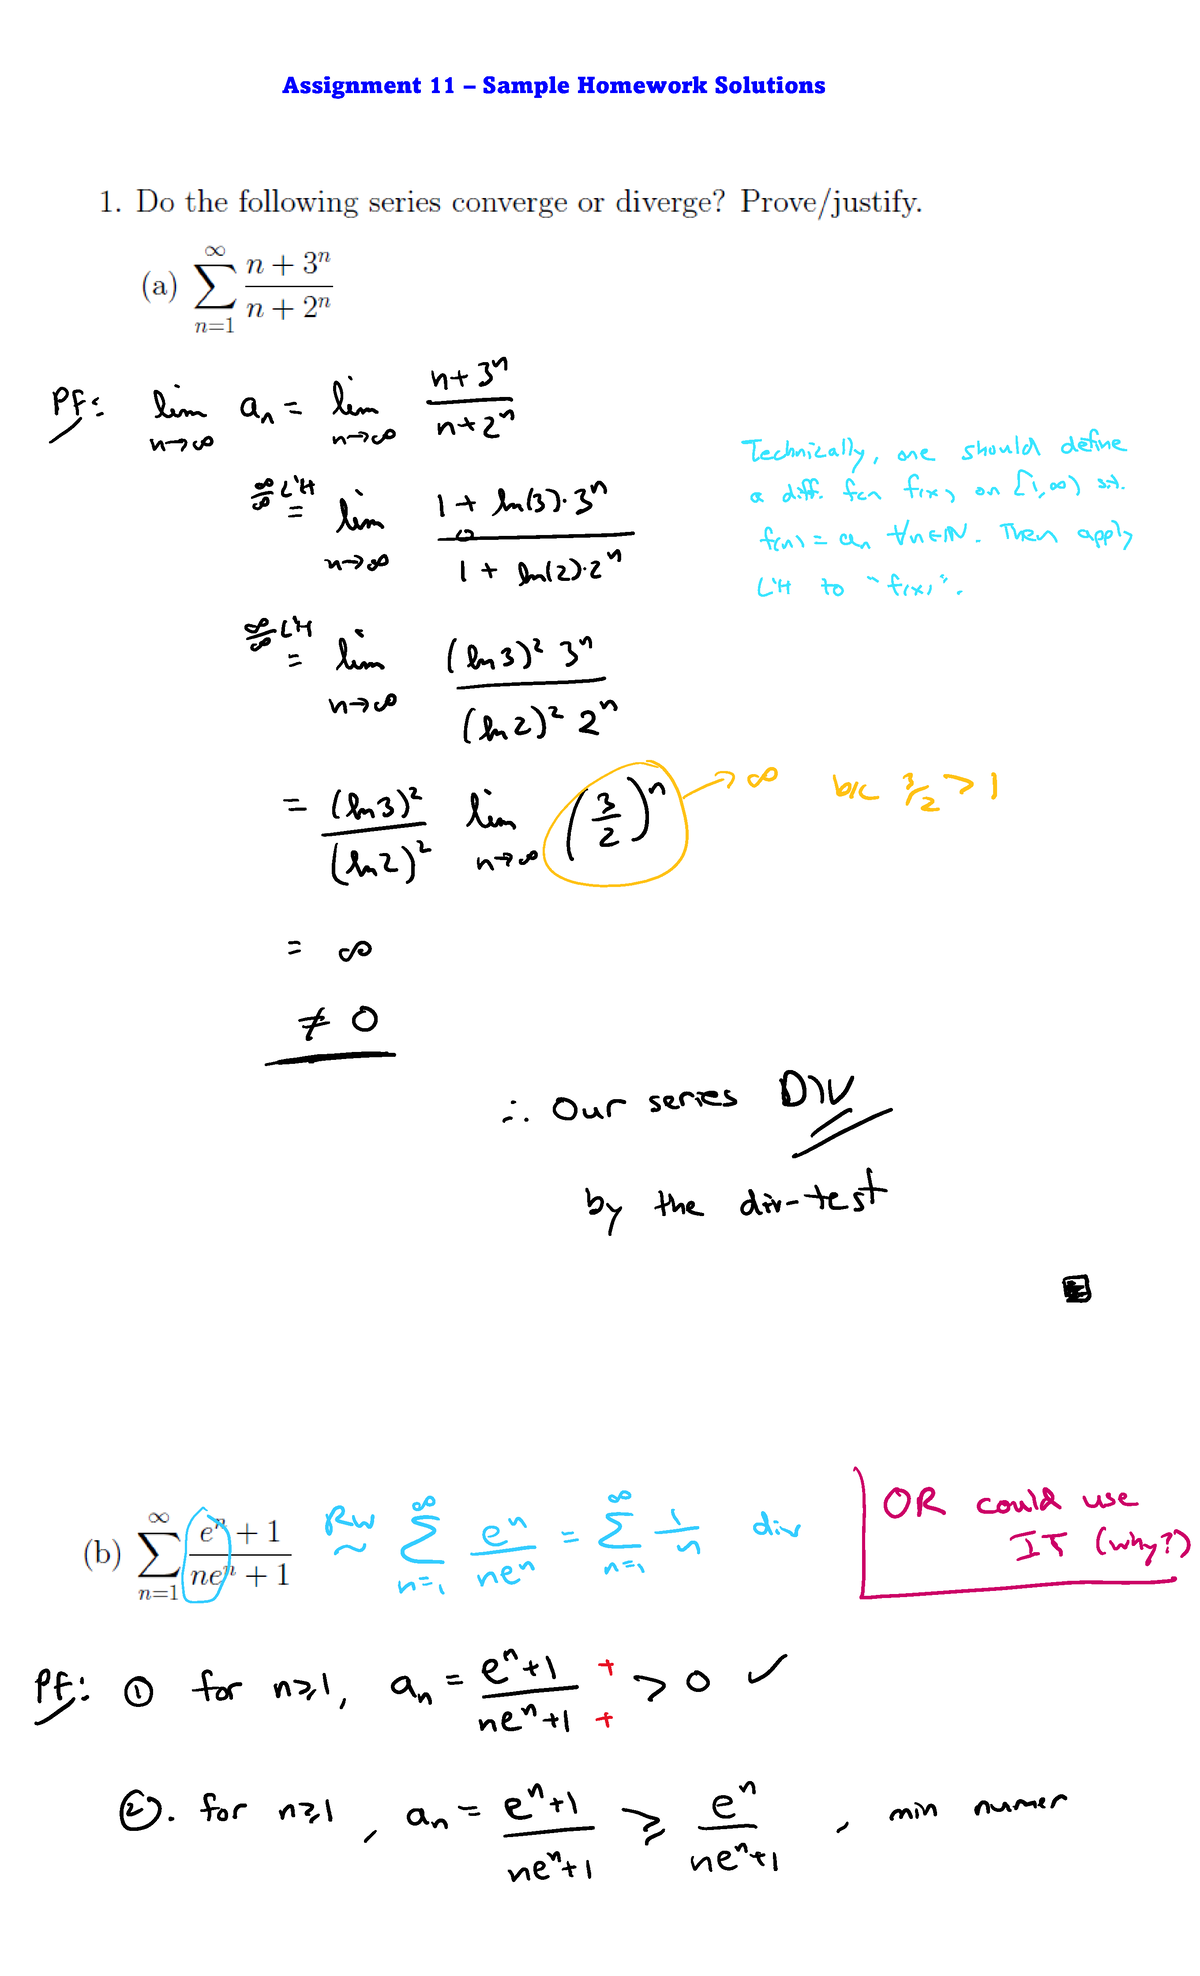 Assignment 11 – Sample Homework Solutions
1. Do the following series converge or diverge? Prove/justify.
(a) ∑_{n=1}^{∞} (n + 3ⁿ)/(n + 2ⁿ)
Pf: lim_{n→∞} aₙ = lim_{n→∞} (n + 3ⁿ)/(n + 2ⁿ)
Technically, one should define
a diff. fcn f(x) on [1,∞) s.t.
f(n) = aₙ ∀n∈ℕ. Then apply
L'H to "f(x)".
∞/∞ L'H = lim_{n→∞} (1 + ln(3)·3ⁿ)/(1 + ln(2)·2ⁿ)
∞/∞ L'H = lim_{n→∞} (ln 3)² 3ⁿ/(ln 2)² 2ⁿ
= (ln 3)²/(ln 2)² lim_{n→∞} (3/2)ⁿ → ∞ b/c 3/2 > 1
= ∞
≠ 0
∴ Our series DIV
by the div-test
(b) ∑_{n=1}^{∞} (eⁿ + 1)/(neⁿ + 1) RW ~ ∑_{n=1}^{∞} eⁿ/neⁿ = ∑_{n=1}^{∞} 1/n div
OR could use
IT (why?)
Pf: ① for n≥1, aₙ = (eⁿ+1)/(neⁿ+1) + + > 0 ✓
②. for n≥1, aₙ = (eⁿ+1)/(neⁿ+1) ≥ eⁿ/(neⁿ+1), min numer